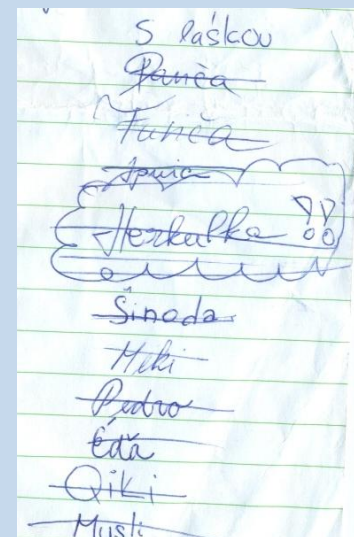 S láskou
Panča
Funča
Herkulka !!
Šineda
Miki
Pedro
Éďa
Qiki
Musli